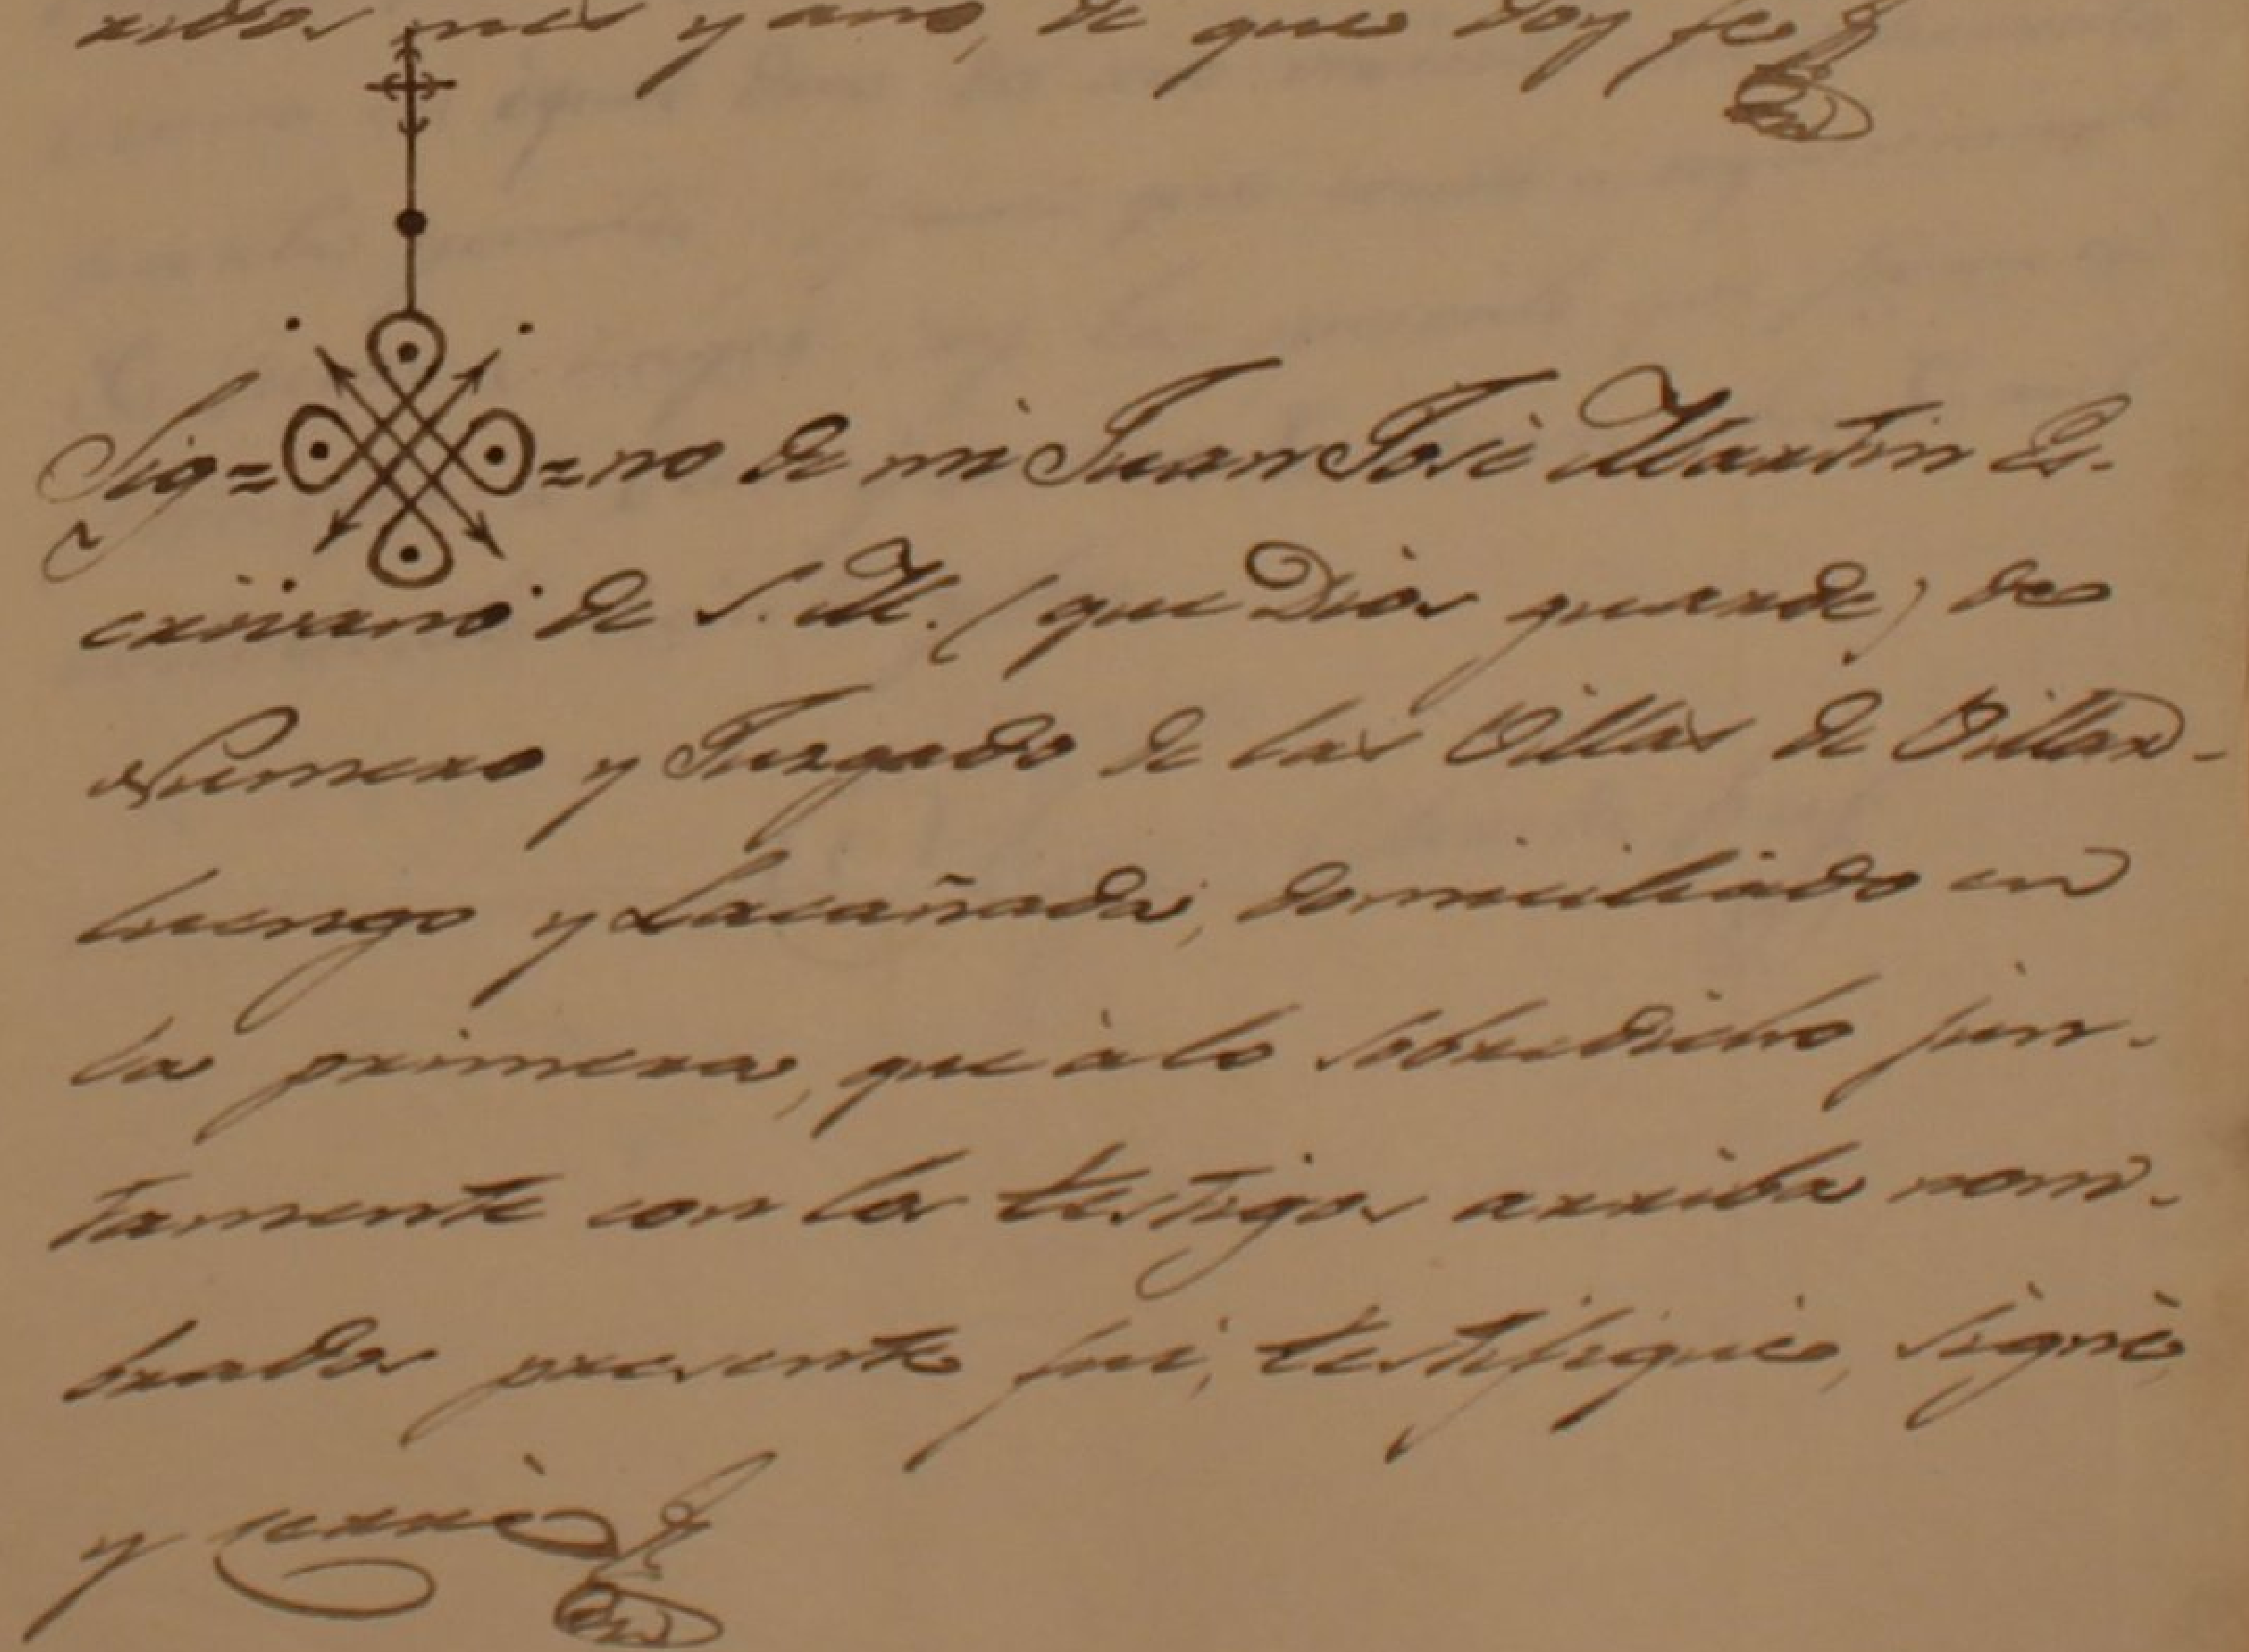 ridos mes y año, de que doy fe
Sig= =no de mi Juan José Martin Es-
crivano de S. M. (que Dios guarde) de
Numero y Juzgado de las Villas de Villar-
luengo y Lacañada, domiciliado en
la primera, que á lo sobredicho jun-
tamente con los testigos arriba nom-
brados presente fui, testifiqué, signé,
y cerré